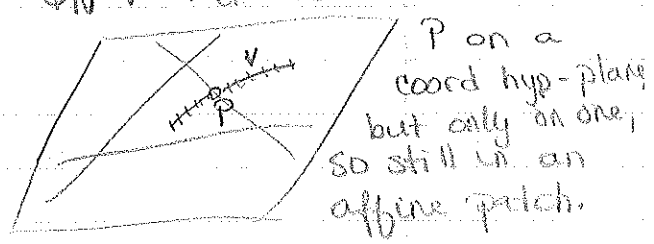 P on a
V
coord hyp-plane
P
but only on one,
so still in an
affine patch.